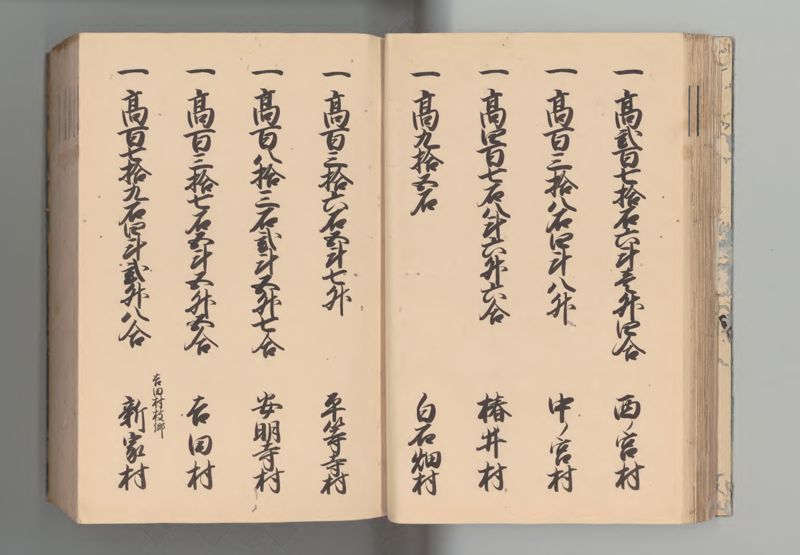 一高弐百七拾石六斗壱升四合 西ノ宮村
一高百三拾八石四斗八升 中ノ宮村
一高四百七石八斗六升六合 椿井村
一高九拾五石 白石畑村
一高百三拾六石五斗七升 平等寺村
一高百八拾三石弐斗五升七合 安明寺村
一高百三拾七石五斗五升五合 吉田村
吉田村枝郷
一高百七拾九石四斗弐升八合 新家村